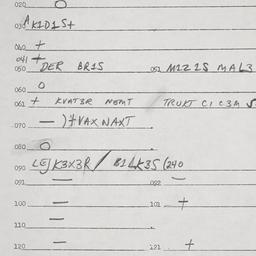 020 O
030 AK1D1S+
040 +
041 +
050 DER BR1S 051 M1Z1S MAL3
060 O
061 + KVAT3R NEMT TRUKT C1 C3M S
070 — )+VAX NAXT
080 O
090 LEJK3X3R / B1LK3S (240
091 — 092 —
100 — 101 +
110 —
120 — 121 +